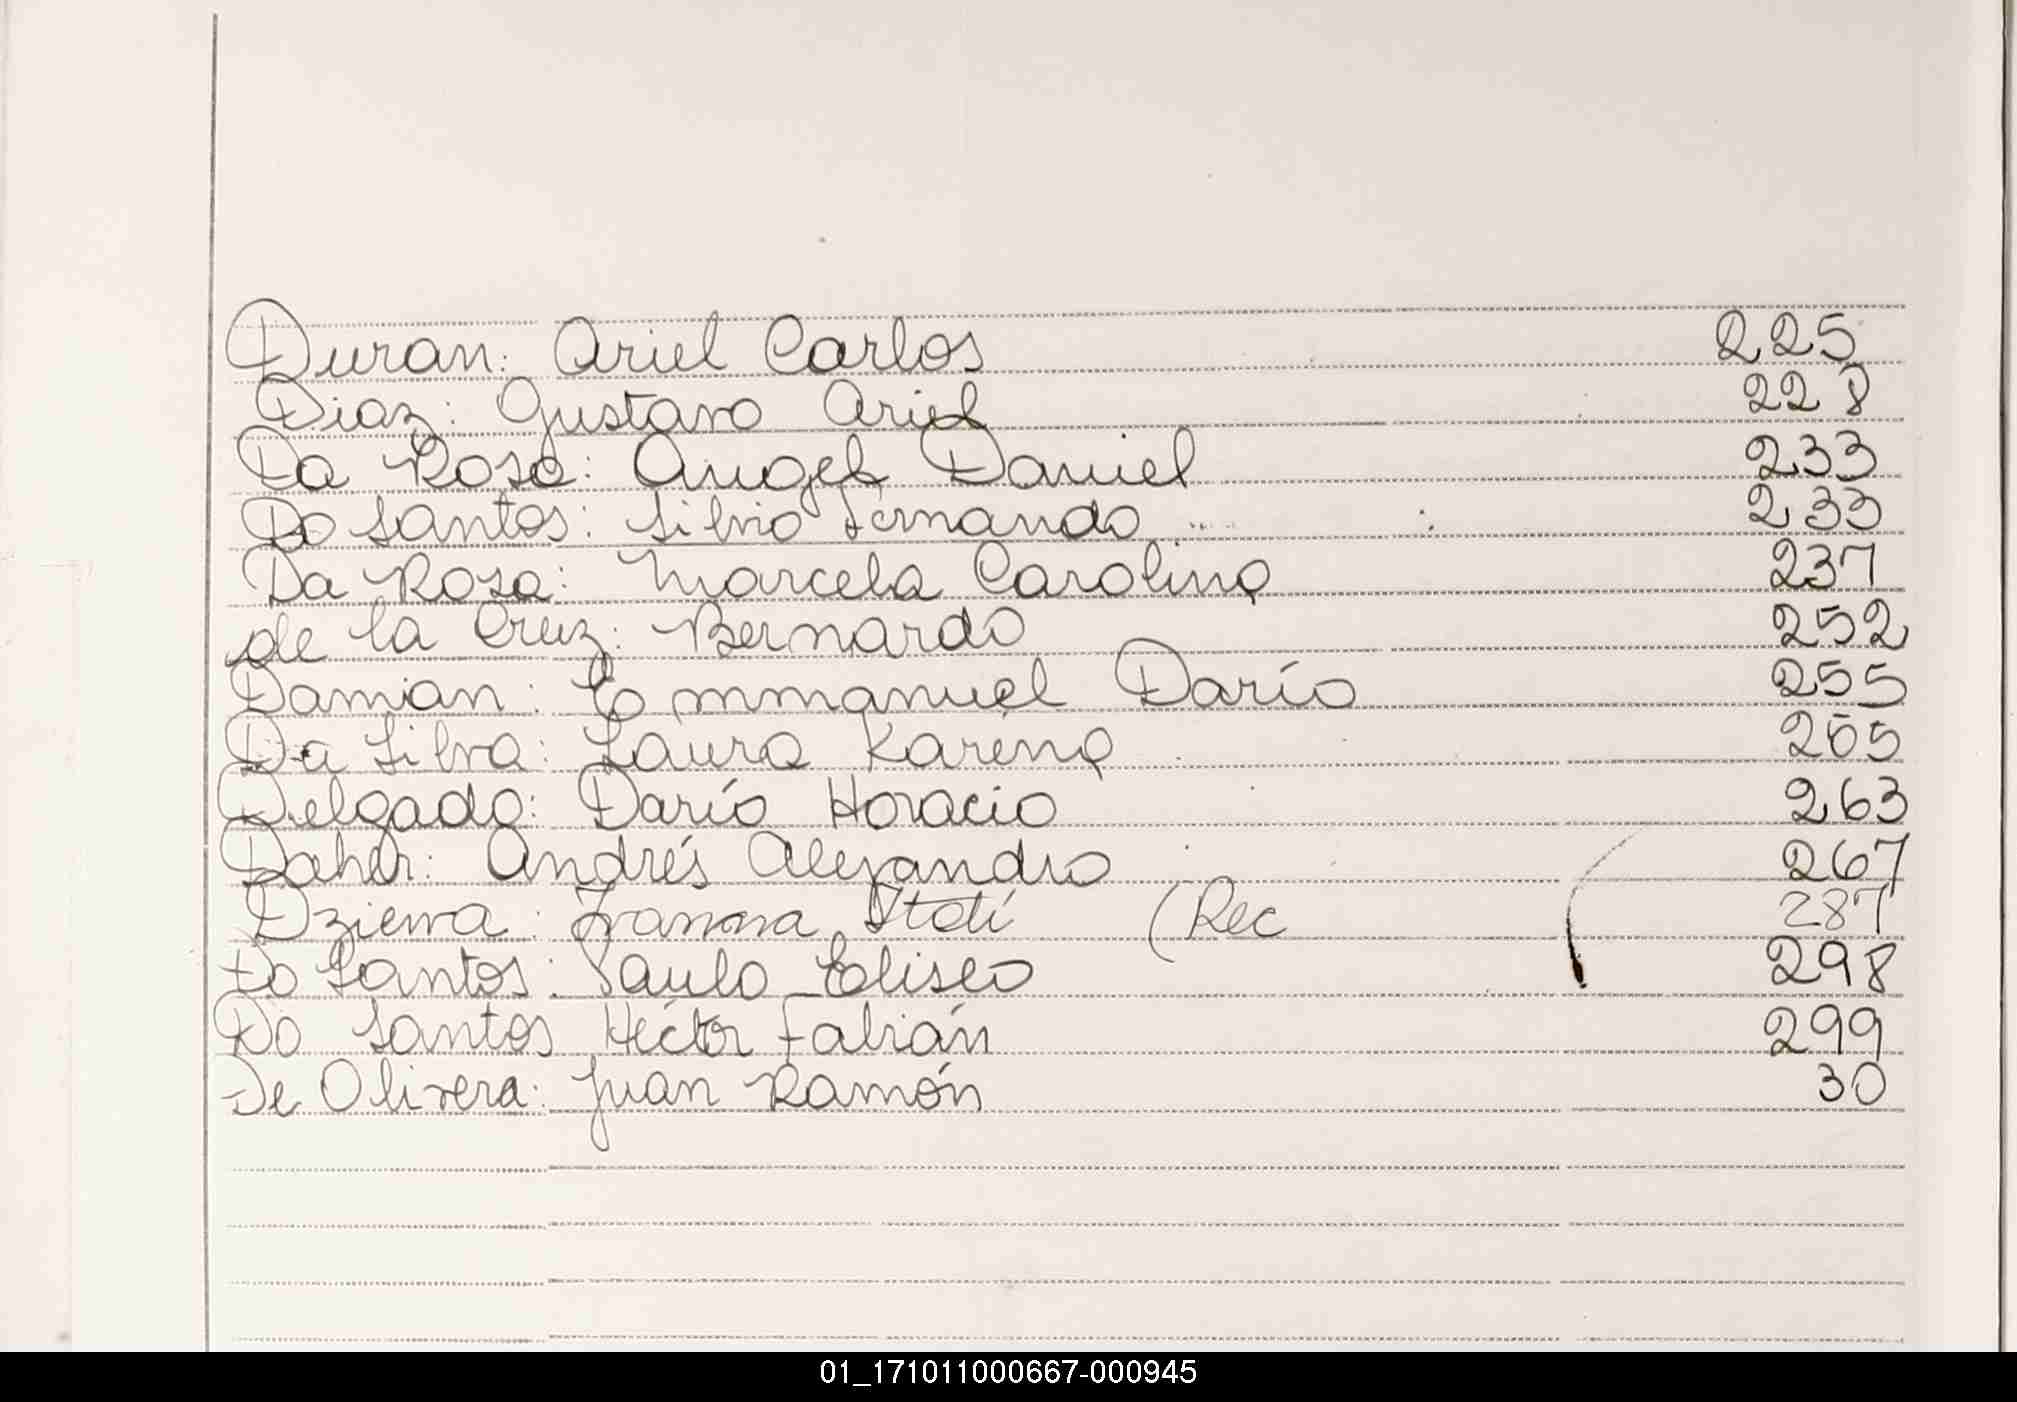 Duran: Ariel Carlos 225
Diaz: Gustavo Ariel 228
Da Rosa: Angel Daniel 233
Do Santos: Silvio Fernando 233
Da Rosa: Marcela Carolina 237
de la Cruz: Bernardo 252
Damian: Emmanuel Darío 255
Da Silva: Laura Karina
Delgado: Darío Horacio 263
Daher: Andrés Alejandro 267
Dzierva: (Rec 287
Do Santos: Paulo Eliseo 298
Do Santos Héctor Fabián 299
De Olivera: Juan Ramón 30
01_171011000667-000945